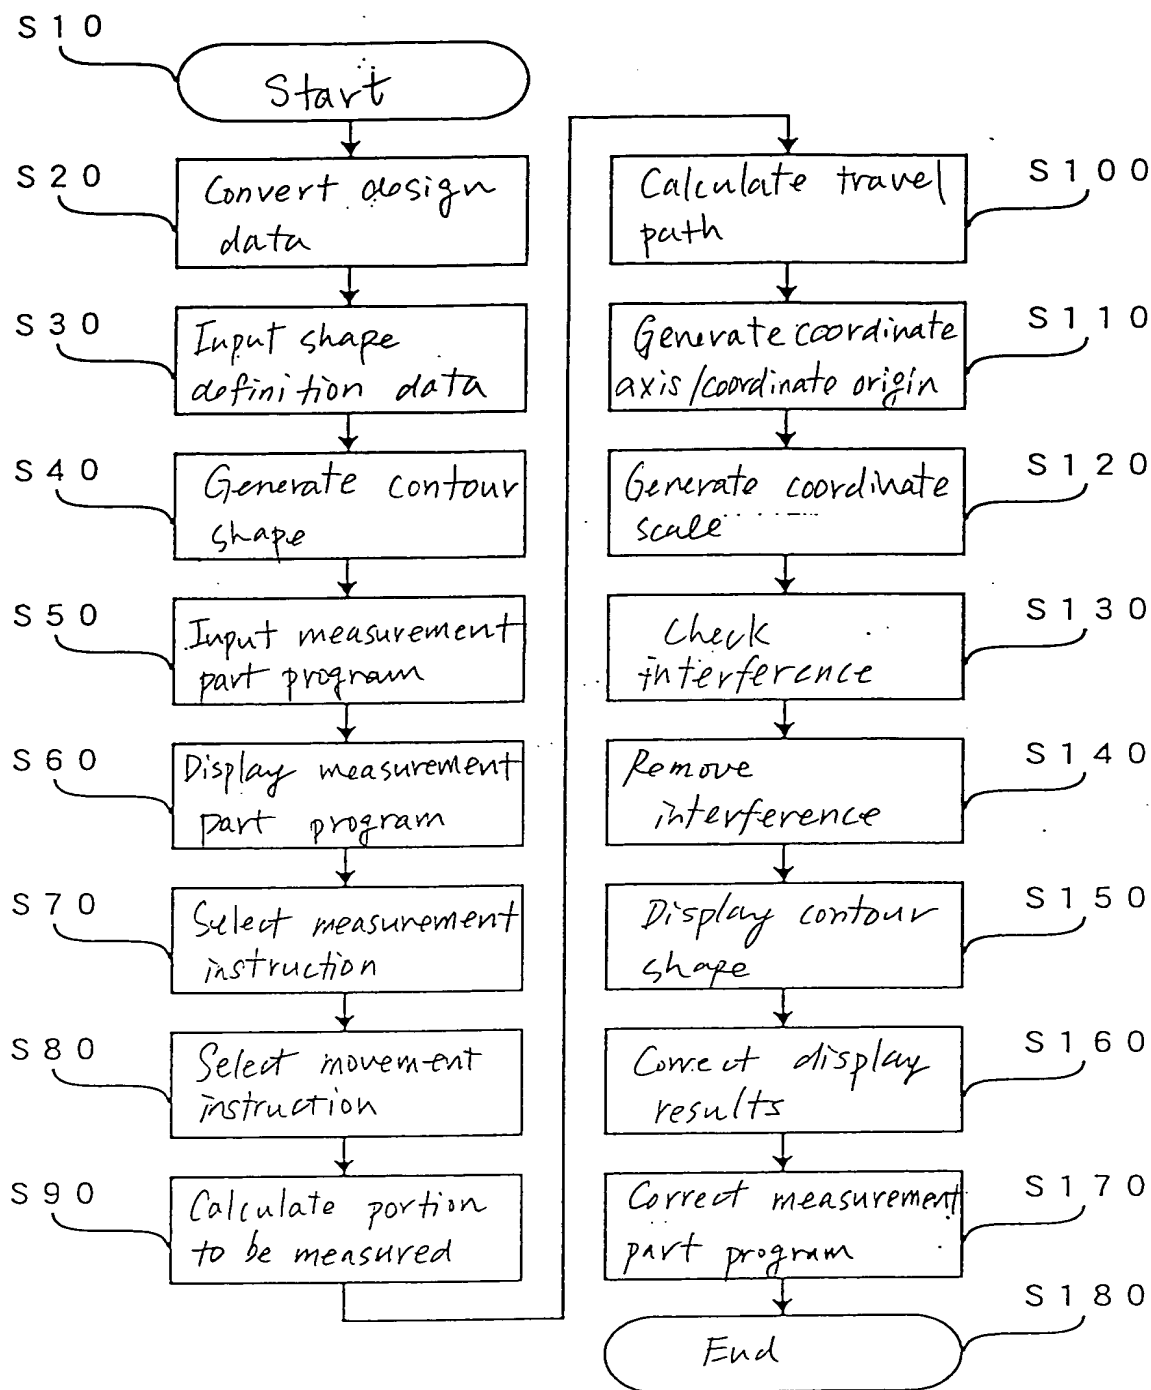 S10
Start
S20
Convert design
data
S30
Input shape
definition data
S40
Generate contour
shape
S50
Input measurement
part program
S60
Display measurement
part program
S70
Select measurement
instruction
S80
Select movement
instruction
S90
Calculate portion
to be measured
S100
Calculate travel
path
S110
Generate coordinate
axis/coordinate origin
S120
Generate coordinate
scale
S130
Check
interference
S140
Remove
interference
S150
Display contour
shape
S160
Correct display
results
S170
Correct measurement
part program
S180
End